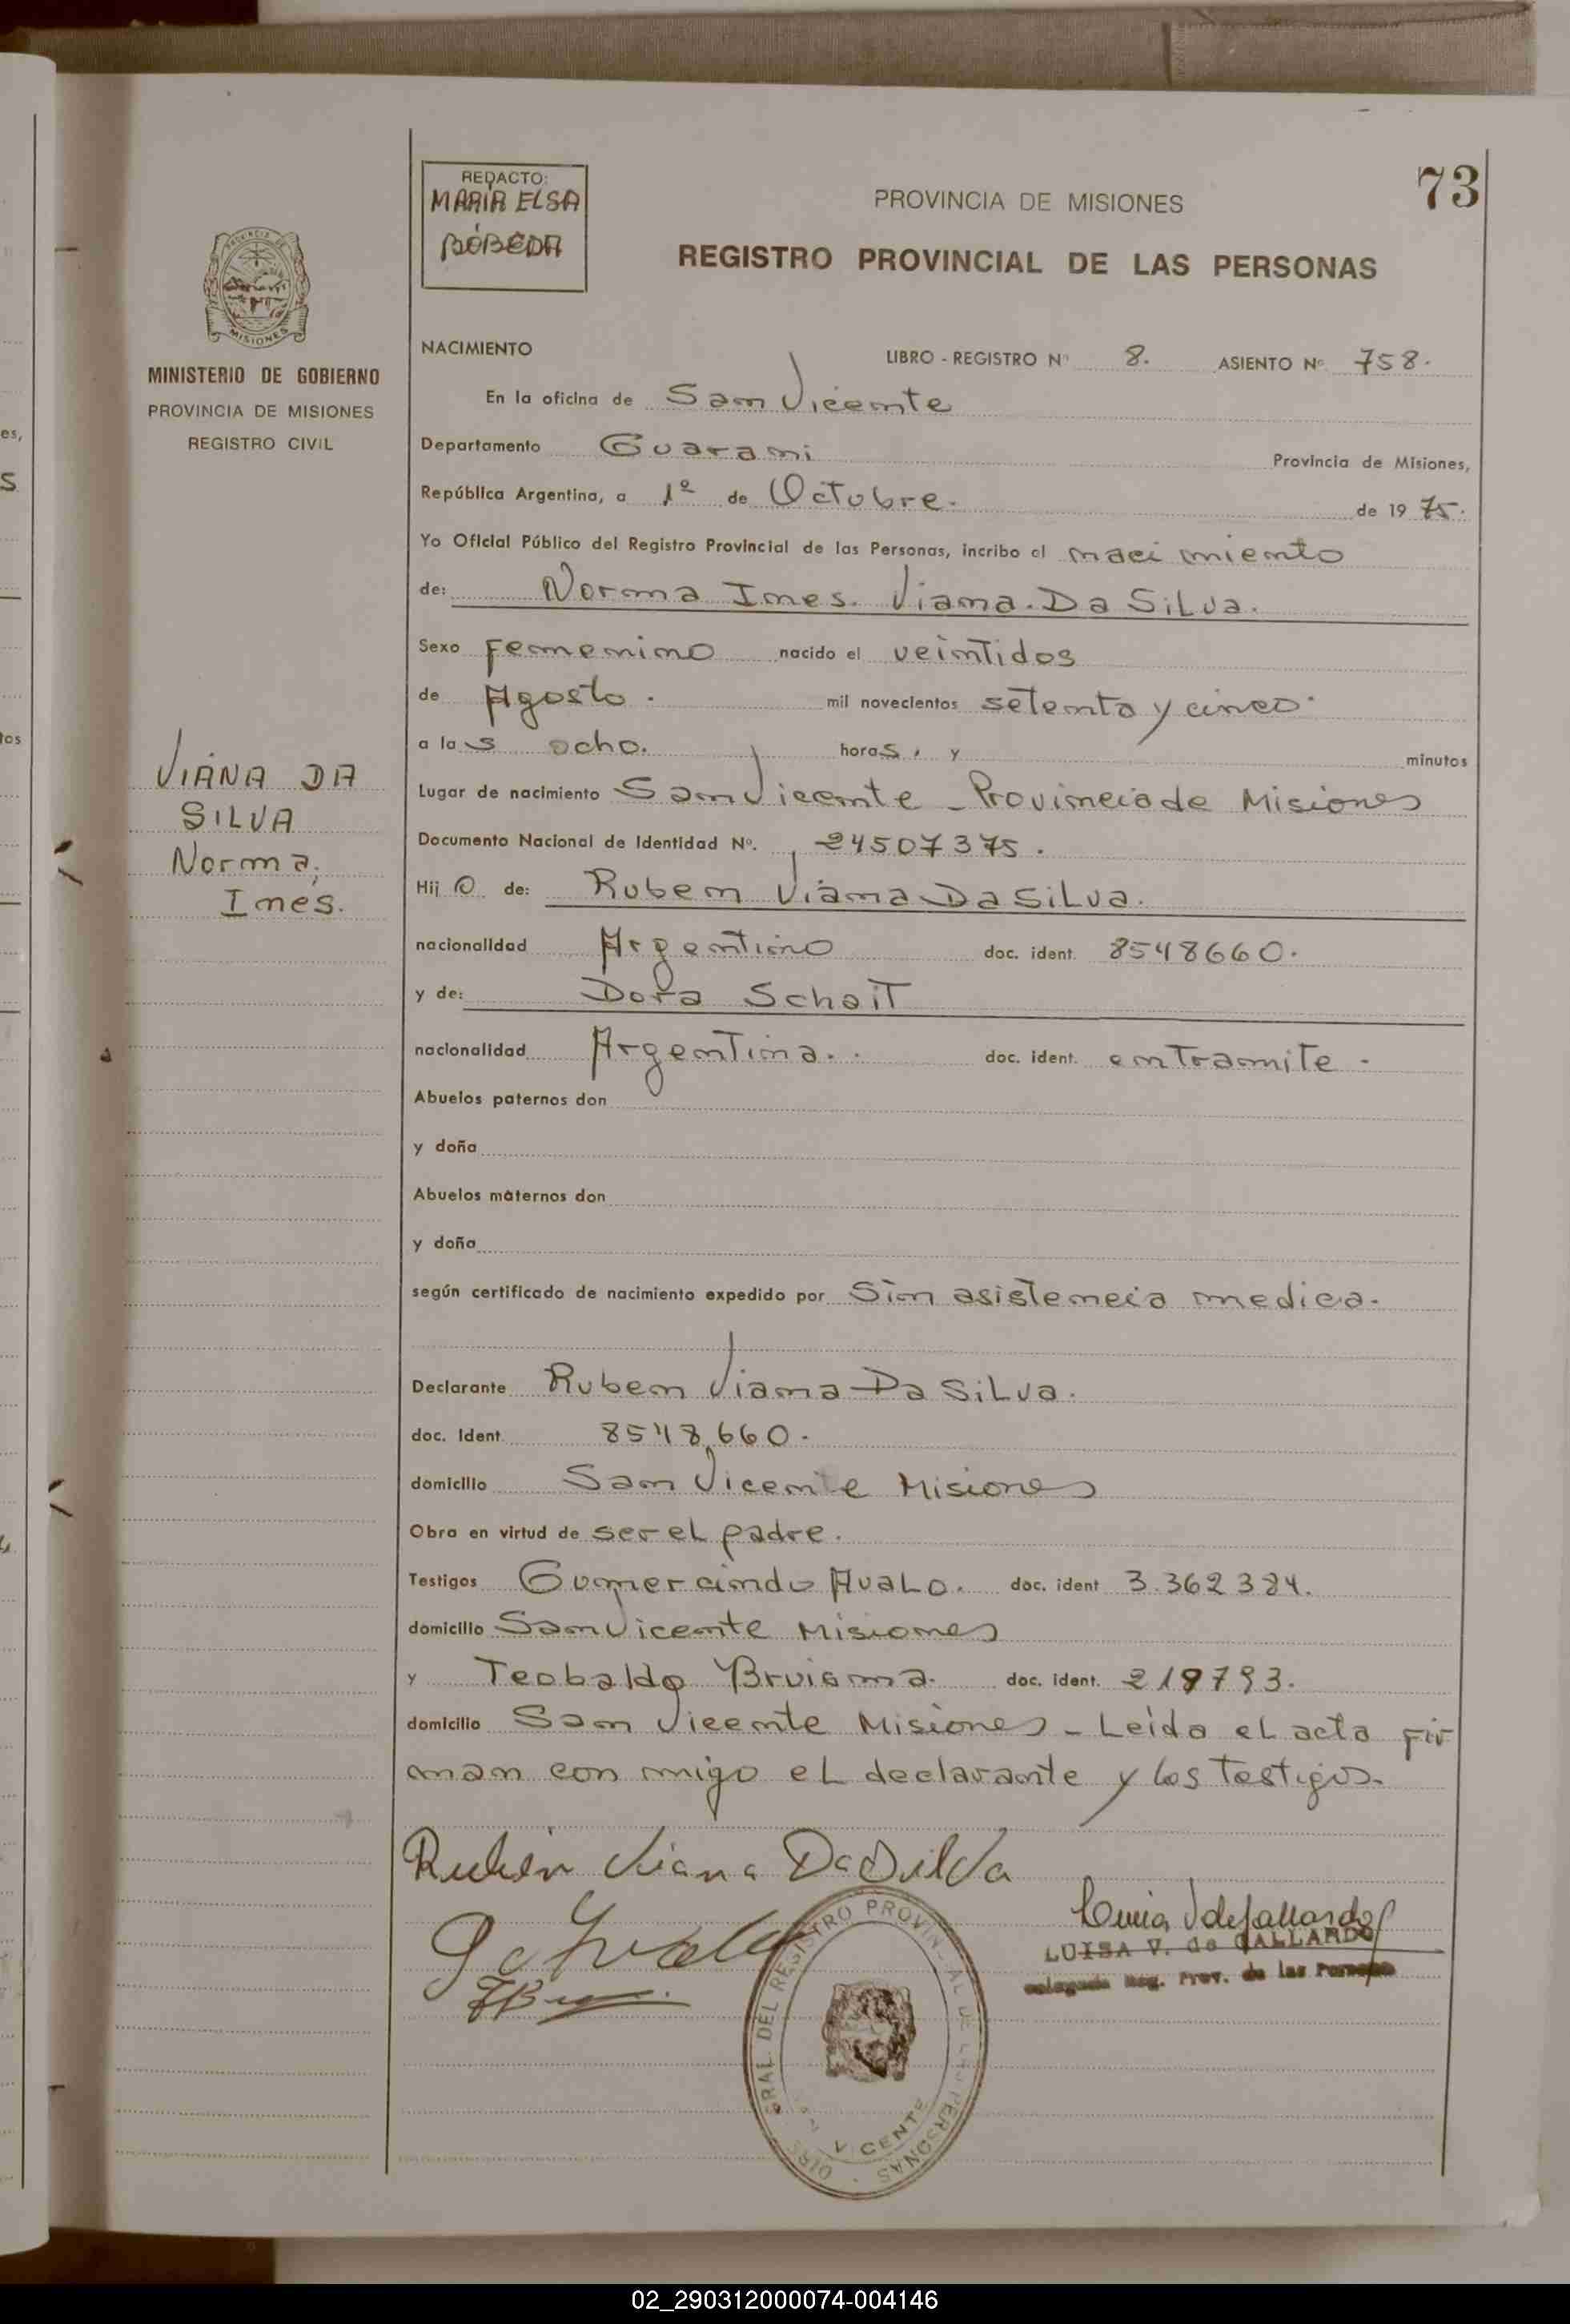 73
REDACTO:
MARIA ELSA
BÓBEDA
PROVINCIA DE MISIONES
REGISTRO PROVINCIAL DE LAS PERSONAS
MISIONES
MINISTERIO DE GOBIERNO
PROVINCIA DE MISIONES
REGISTRO CIVIL
VIANA DA
SILVA
Norma,
Ines.
NACIMIENTO LIBRO - REGISTRO Nº 8. ASIENTO Nº 758.
En la oficina de San Vicente
Departamento Guarani Provincia de Misiones,
República Argentina, a 1º de Octubre. de 1975.
Yo Oficial Público del Registro Provincial de las Personas, incribo el nacimiento
de: Norma Ines. Viana. Da Silva.
Sexo femenino nacido el veintidos
de Agosto. mil novecientos setenta y cinco.
a las ocho. horas, y minutos
Lugar de nacimiento San Vicente - Provincia de Misiones
Documento Nacional de Identidad Nº. 24507375.
Hij@ de: Ruben Viana Da Silva.
nacionalidad Argentino doc. ident. 8548660.
y de: Dora Schait
nacionalidad Argentina. doc. ident. en Tramite.
Abuelos paternos don
y doña
Abuelos maternos don
y doña
según certificado de nacimiento expedido por Sin asistencia medica.
Declarante Ruben Viana Da Silva.
doc. Ident. 8548660.
domicilio San Vicente Misiones
Obra en virtud de ser el padre.
Testigos Gumercindo Avalo. doc. ident 3.362384.
domicilio San Vicente Misiones
y Teobaldo doc. ident. 219793.
domicilio San Vicente Misiones - Leido el acta fir
man con migo el declarante y los Testigos.
Rubén Viana DaSilva
LUISA V. de GALLARDO
Delegada Reg. Prov. de las Personas
02_290312000074-004146